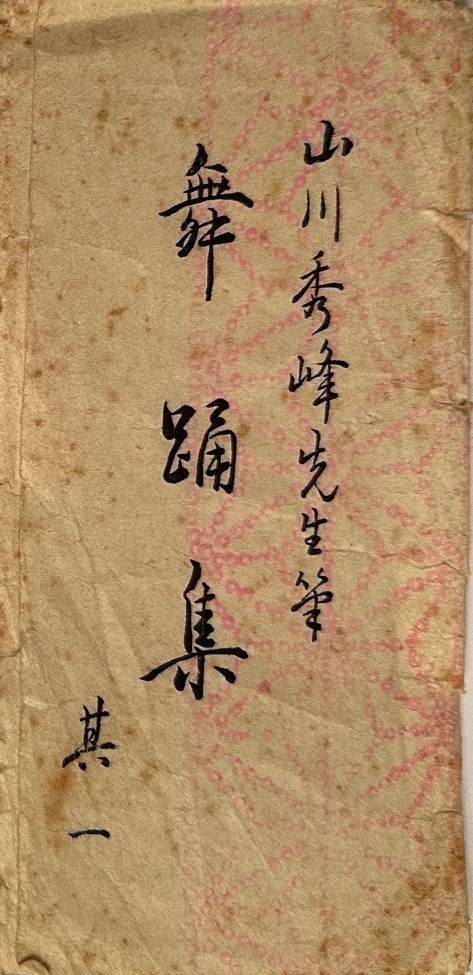 山川秀峰先生筆
舞踊集
其一